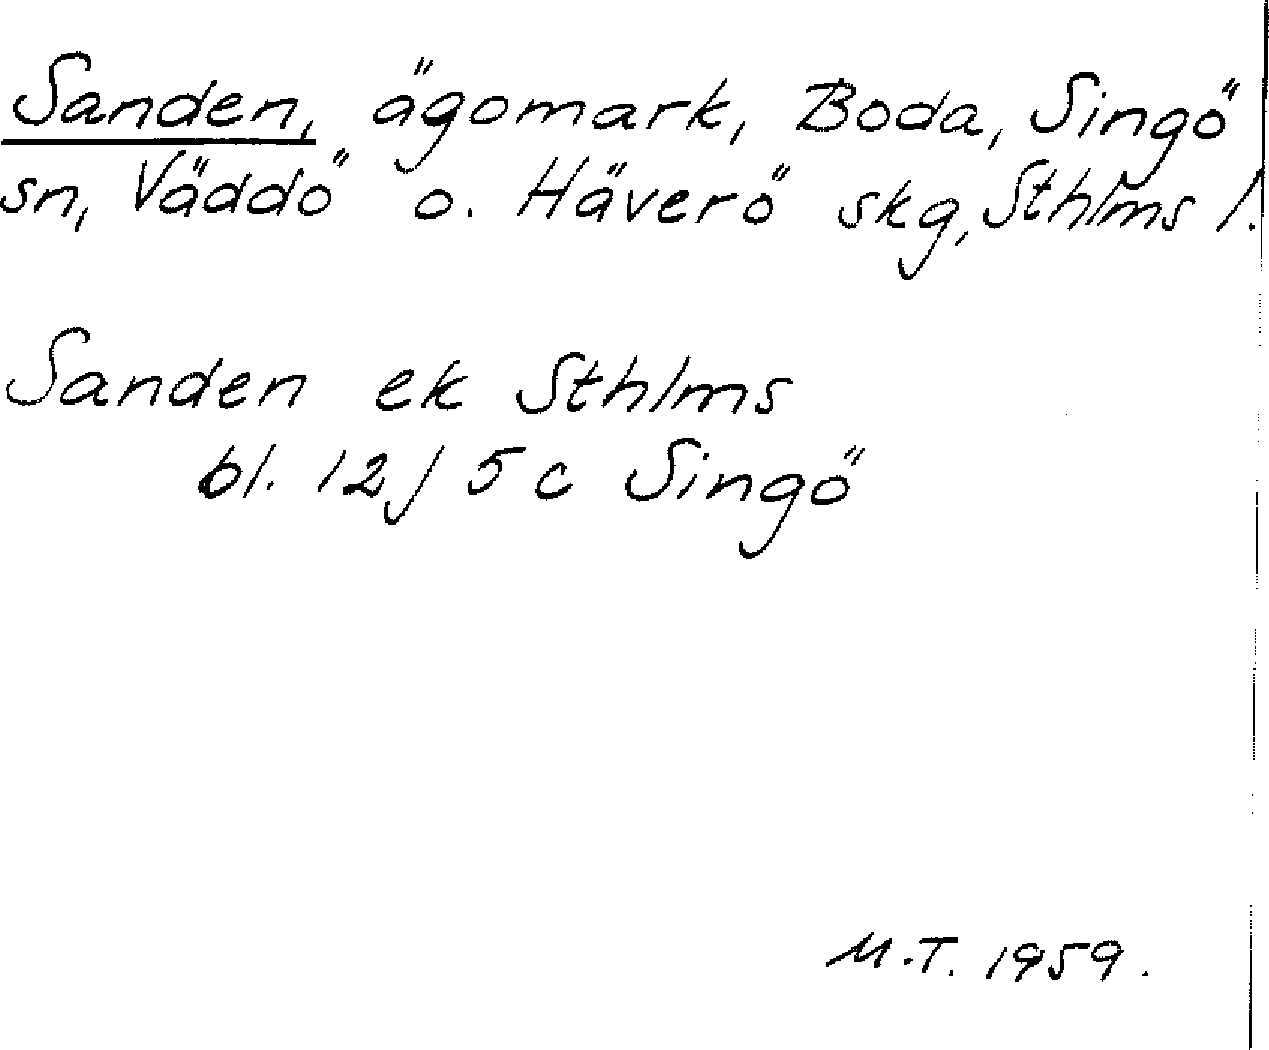 Sanden, ägomark, Boda, Singö
sn, Väddö o. Häverö skg, Sthlms l.
Sanden ek Sthlms
bl. 12J 5c Singö
M.T. 1959.